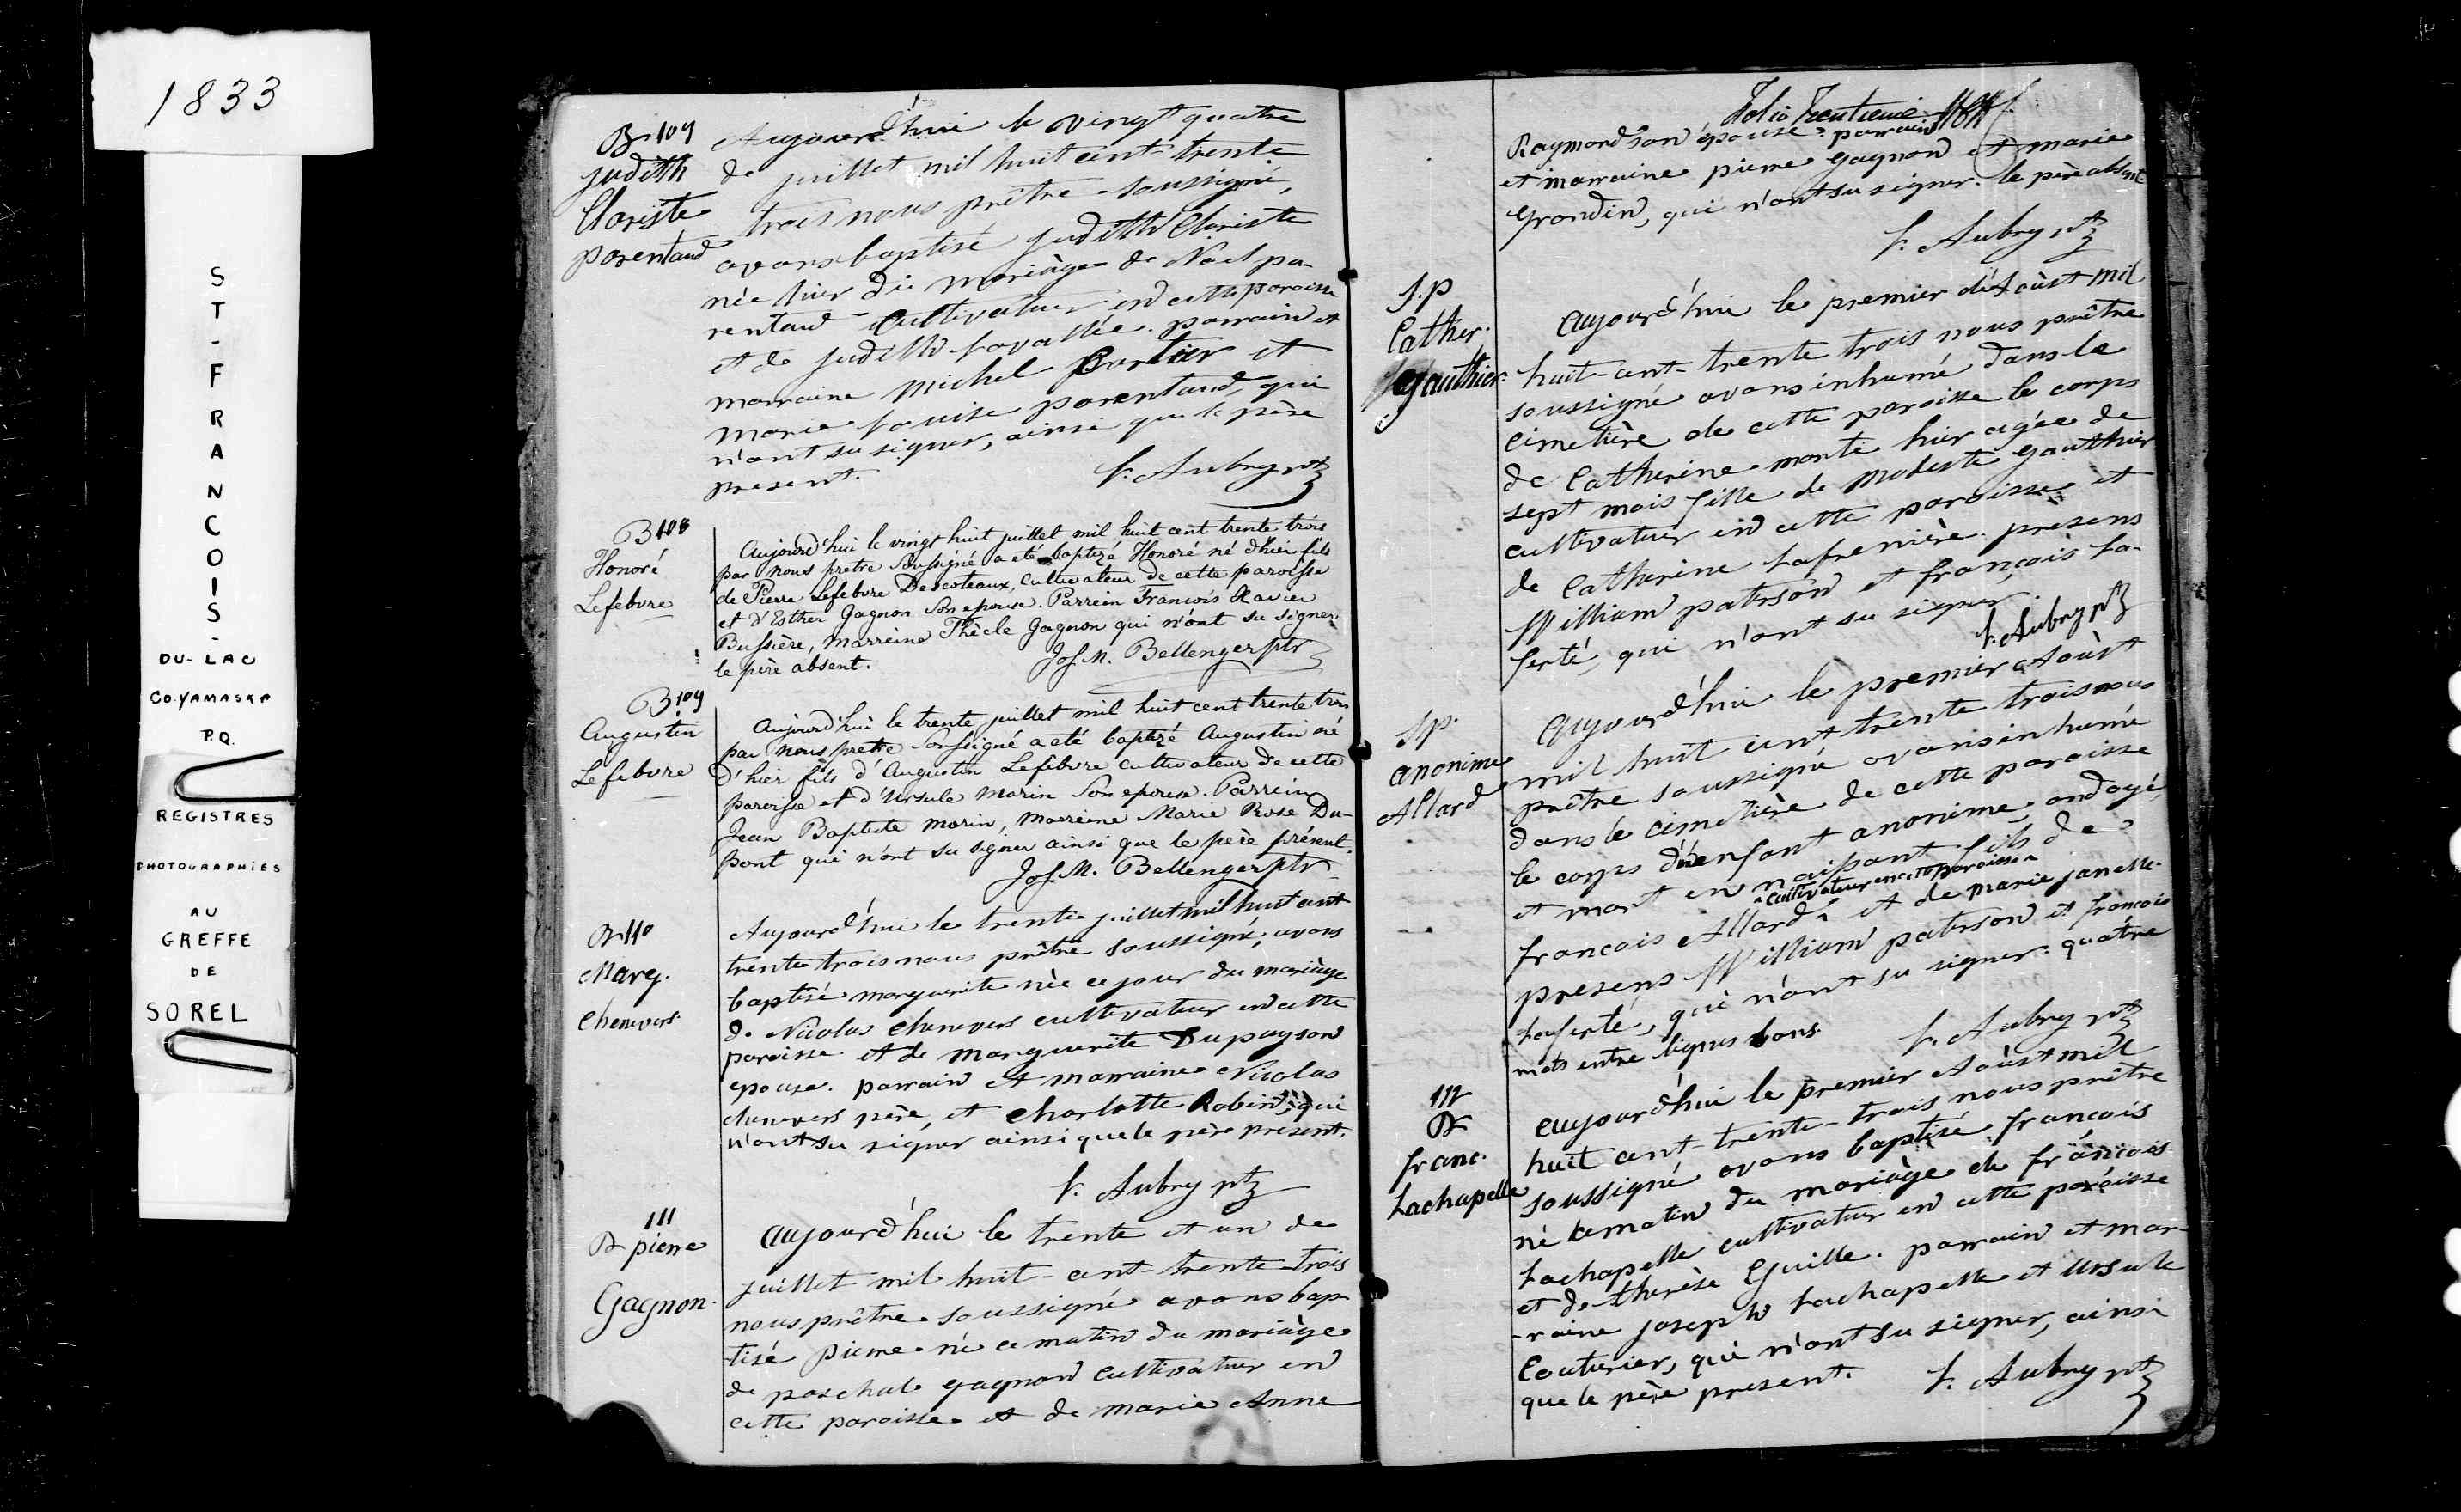 1833
ST-FRANCOIS-
DU-LAC
CO. YAMASKA
P.Q.
REGISTRES
PHOTOGRAPHIÉS
AU
GREFFE
DE
SOREL
B 109
judith
Clariste
parentaud
Aujourd'hui le vingt quatre
de juillet mil huit cent trente
trois nous prêtre soussigné,
avons baptisé judith Clariste
née hier du mariàge de Noel pa-
rentaud cultivateur en cette paroisse
et de judith Lavallée. parrain et
marraine Michel Bartier et
marie Louise parentaud, qui
n'ont su signer, ainsi que le père
present.
F. Aubry ptr
B 108
Honoré
Lefebvre
Aujourd'hui le vingt huit juillet mil huit cent trente trois
par nous pretre soussigné a eté baptizé Honoré né d'hier fils
de Pierre Lefebvre Descoteaux, cultivateur de cette paroisse
et d'Esther Gagnon son epouse. Parrein François Xavier
Bussière, marreine Thècle Gagnon qui n'ont su signer.
le père absent.
Jos. M. Bellenger ptr
B 109
Augustin
Lefebvre
Aujourd'hui le trente juillet mil huit cent trente trois
par nous pretre soussigné a eté baptizé Augustin né
d'hier fils d'Augustin Lefebvre cultivateur de cette
paroisse et d'Ursule Morin son epouse. Parrein
Jean Baptiste Morin, marreine Marie Rose Du-
pont qui n'ont su signer ainsi que le père présent.
Jos. M. Bellenger ptr
B 110
Marg.
Chenevers.
Aujourd'hui le trente juillet mil huit cent
trente trois nous prêtre soussigné, avons
baptisé marguerite née ce jour du mariàge
de Nicolas chenevers cultivateur en cette
paroisse et de marguerite Dupuy son
epouse. parrain et marraine Nicolas
chenevers père, et charlotte Robin, qui
n'ont su signer ainsi que le père present.
F. Aubry ptr
111
B pierre
Gagnon.
Aujourd'hui le trente et un de
juillet mil huit-cent-trente-trois
nous prêtre soussigné avons bap-
tisé pierre né ce matin du mariàge
de paschal gagnon cultivateur en
cette paroisse et de marie Anne
Folio Trentieme
Raymond son épouse. parrain
et marraine pierre gagnon et marie
grondin, qui n'ont su signer. le père absent
F. Aubry ptr
S.p
Cather.
Gauthier.
Aujourd'hui le premier d'Aoùst mil
huit-cent-trente trois nous prêtre
soussigné avons inhumé dans le
cimetière de cette paroisse le corps
de Catherine morte hier agée de
sept mois fille de modeste gauthier
cultivateur en cette paroisse et
de Catherine Lafrenière. presens
William paterson et françois La-
ferté, qui n'ont su signer.
F. Aubry ptr
Sp.
anonime
Allard
Aujourd'hui le premier Aoùst
mil huit cent trente trois nous
prêtre soussigné avons inhumé
dans le cimetière de cette paroisse
le corps d'un enfant anonime, ondoyé,
et mort en naissant fils de
^cultivateur en cette paroisse^
francois Allard^ et de marie janelle.
presens William paterson et francois
Laferté, qui n'ont su signer. quatre
mots entre lignes bons.
F. Aubry ptr
112
B
franc.
Lachapelle
Aujourd'hui le premier Aoùst mil
huit cent-trente-trois nous prêtre
soussigné avons baptisé françois
né ce matin du mariàge de françois
Lachapelle cultivateur en cette paroisse
et de thérèse Eguille. parrain et mar-
-raine joseph Lachapelle et Ursule
Couturier, qui n'ont su signer, ainsi
que le père present.
F. Aubry ptr